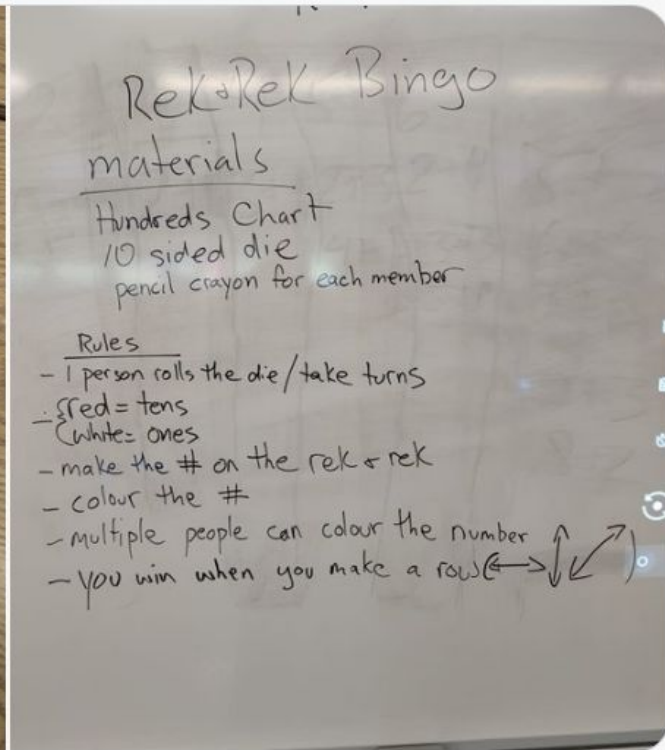 Rek&Rek Bingo
materials
Hundreds Chart
10 sided die
pencil crayon for each member
Rules
- 1 person rolls the die/take turns
- {red = tens
{white = ones
- make the # on the rek & rek
- colour the #
- multiple people can colour the number
- you win when you make a row (↔ ↕ ⤢)